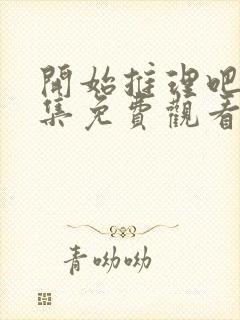 開始推理吧
集免費觀看
青呦呦